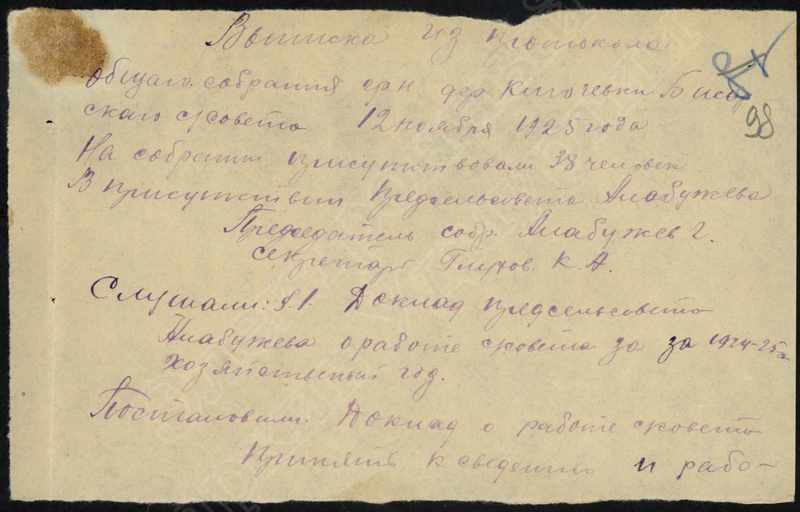 Выписка из протокола
98
общаго собрания гр-н дер Кигочевки Бисер
скаго с/совета 12 ноября 1925 года
На собрании присутствовали 38 человек
В присутствии Предсельсовета Алабужева
Председатель собр. Алабужев Г.
Секретарь Глухов К. А.
Слушали: § 1. Доклад предсельсовета
Алабужева о работе с/совета за за 1924-25 г
хозяйственный год.
Постановили. Доклад о работе с/совета
Принять к сведению и рабо-